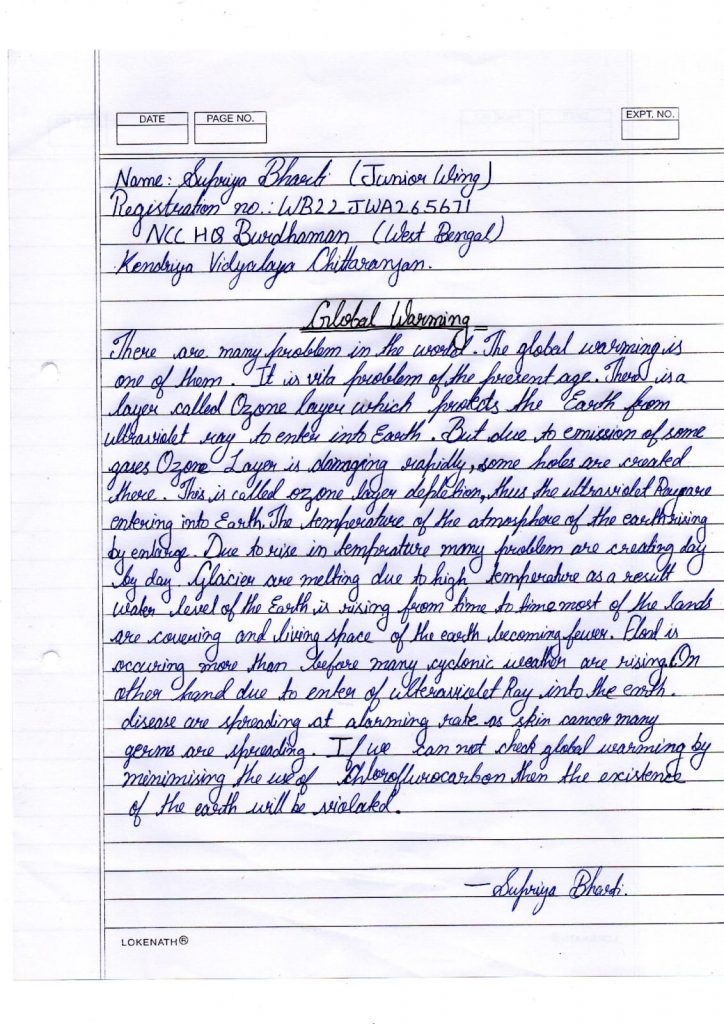 DATE
PAGE NO.
EXPT. NO.
Name: Supriya Bharti (Junior Wing)
Registration no.: WB22JWA265671
NCC HQ Burdhaman (West Bengal)
Kendriya Vidyalaya Chittaranjan.
Global Warming
There are many problem in the world. The global warming is
one of them. It is vita problem of the present age. There is a
layer called Ozone layer which protects the Earth from
ultraviolet ray to enter into Earth. But due to emission of some
gases Ozone Layer is damaging rapidly, some holes are created
there. This is called ozone layer depletion, thus the ultraviolet Ray are
entering into Earth. The temperature of the atmosphere of the earth rising
by enlarge. Due to rise in temprature many problem are creating day
by day. Glacier are melting due to high temperature as a result
water level of the Earth is rising from time to time most of the lands
are covering and living space of the earth becoming fewer. Flood is
occuring more than before many cyclonic weather are rising. On
other hand due to enter of ultraviolet Ray into the earth.
disease are spreading at alarming rate as skin cancer many
germs are spreading. If we can not check global warming by
menimising the use of Chloroflurocarbon then the existence
of the earth will be violated.
— Supriya Bharti.
LOKENATH®